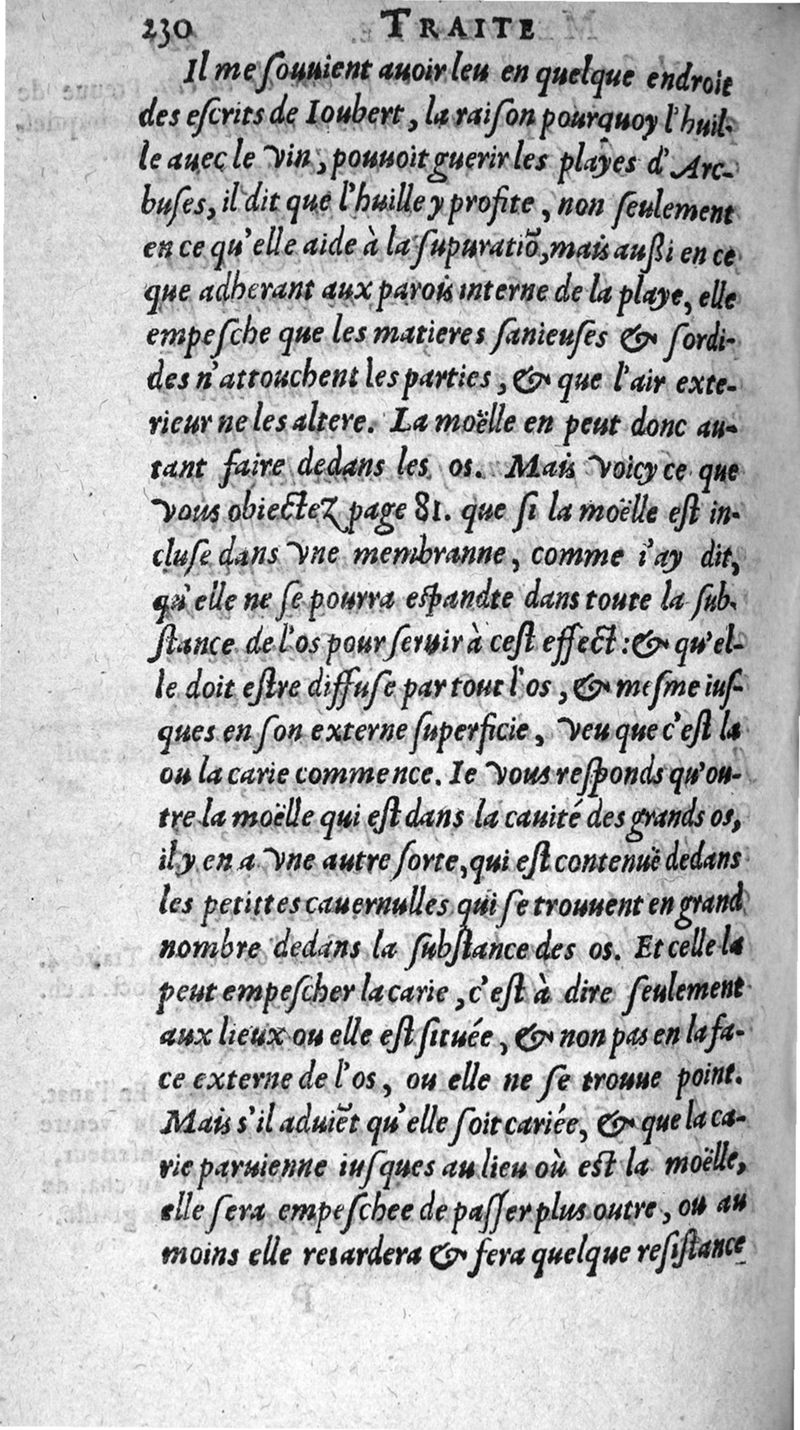 230 TRAITE
Il me ſouuient auoir leu en quelque endroit
des eſcrits de Ioubert, la raiſon pourquoy l'huil-
le auec le vin, pouuoit guerir les playes d'Arc-
buſes, il dit que l'huille y profite, non ſeulement
en ce qu'elle aide à la ſupuratiō, mais auſſi en ce
que adherant aux parois interne de la playe, elle
empeſche que les matieres ſanieuſes & ſordi-
des n'attouchent les parties, & que l'air exte-
rieur ne les altere. La moëlle en peut donc au-
tant faire dedans les os. Mais voicy ce que
vous obiectez page 81. que ſi la moëlle eſt in-
cluſe dans vne membranne, comme i'ay dit,
qu'elle ne ſe pourra eſpandte dans toute la ſub-
ſtance de l'os pour ſeruir à ceſt effect: & qu'el-
le doit eſtre diffuſe par tout l'os, & meſme iuſ-
ques en ſon externe ſuperficie, veu que c'eſt la
ou la carie commence. Ie vous reſponds qu'ou-
tre la moëlle qui eſt dans la cauité des grands os,
il y en a vne autre ſorte, qui eſt contenuë dedans
les petittes cauernulles qui ſe trouuent en grand
nombre dedans la ſubſtance des os. Et celle la
peut empeſcher la carie, c'eſt à dire ſeulement
aux lieux ou elle eſt ſituée, & non pas en la fa-
ce externe de l'os, ou elle ne ſe trouue point.
Mais s'il aduiēt qu'elle ſoit cariée, & que la ca-
rie paruienne iuſques au lieu où eſt la moëlle,
elle ſera empeſchee de paſſer plus outre, ou au
moins elle retardera & fera quelque reſiſtance